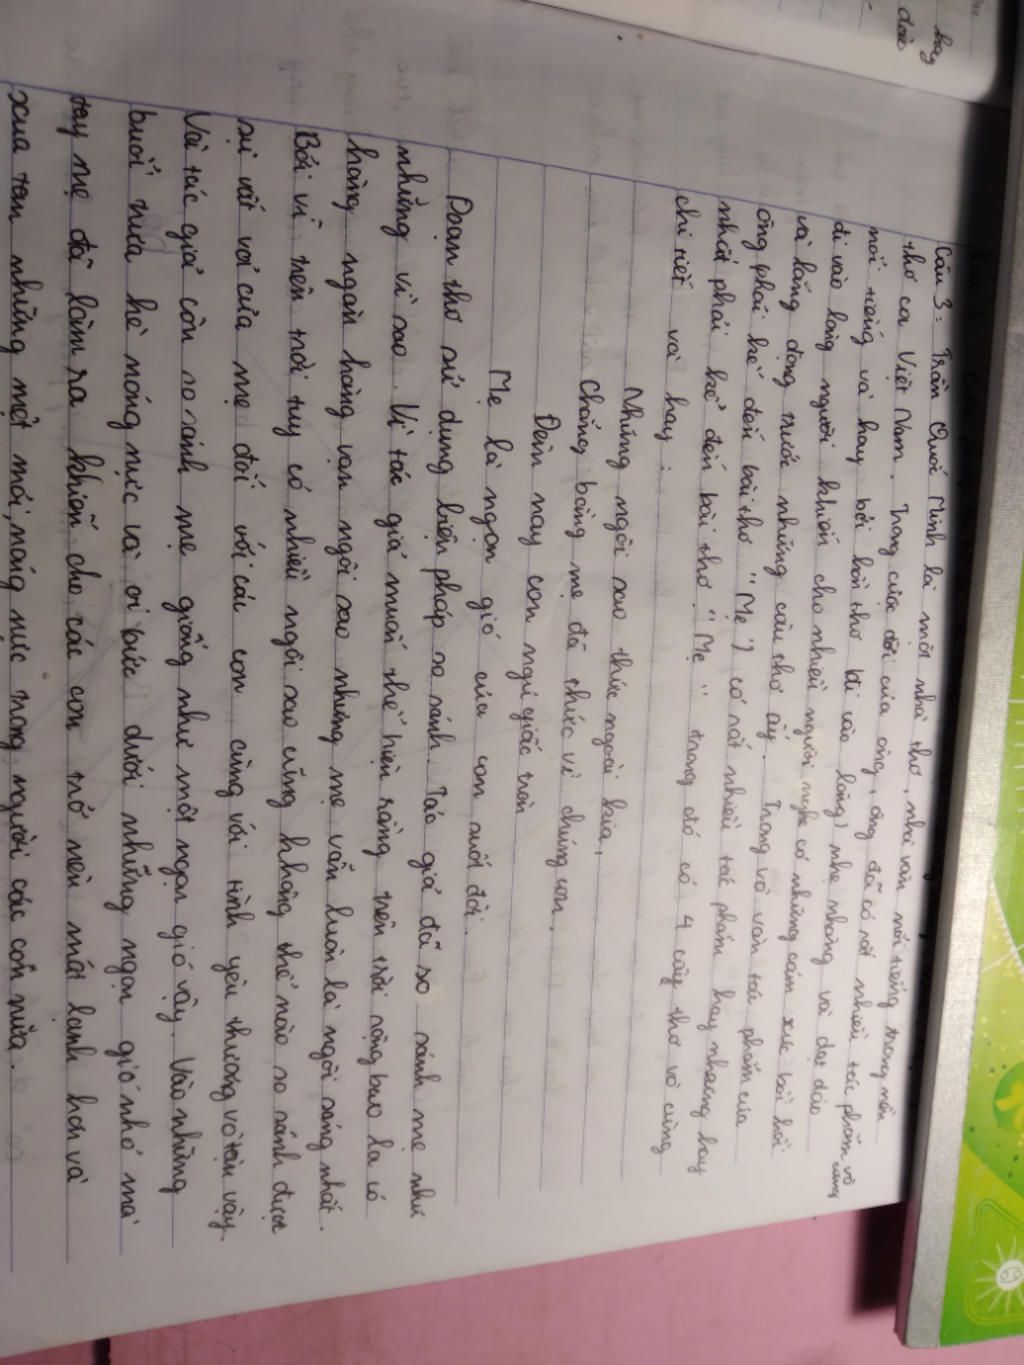 hay
dào
Câu 3: Trần Quốc Minh là một nhà thơ, nhà văn nổi tiếng trong nền
thơ ca Việt Nam. Trong cuộc đời của ông, ông đã có rất nhiều tác phẩm vô cùng
nổi tiếng và hay bởi lời thơ đi vào lòng) nhẹ nhàng và dạt dào
đi vào lòng người khiến cho nhiều người nghe có những cảm xúc bồi hồi
và lắng đọng trước những câu thơ ấy. Trong vô vàn tác phẩm của
ông phải kể đến bài thơ "Mẹ") có rất nhiều tác phẩm hay nhưng hay
nhất phải kể đến bài thơ "Mẹ" trong đó có 4 câu thơ vô cùng
chi tiết và hay:
Những ngôi sao thức ngoài kia,
Chẳng bằng mẹ đã thức vì chúng con.
Đêm nay con ngủ giấc tròn
Mẹ là ngọn gió của con suốt đời.
Đoạn thơ sử dụng biện pháp so sánh. Tác giả đã so sánh mẹ như
những vì sao. Vì tác giả muốn thể hiện rằng trên trời rộng bao la có
hàng ngàn hàng vạn ngôi sao nhưng mẹ vẫn luôn là ngôi sáng nhất.
Bởi vì trên trời tuy có nhiều ngôi sao cũng không thể nào so sánh được
sự vất vả của mẹ đối với các con cùng với tình yêu thương vô tận vậy.
Và tác giả còn so sánh mẹ giống như một ngọn gió vậy. Vào những
buổi trưa hè nóng nực và oi bức dưới những ngọn gió nhỏ mà
tay mẹ đã làm ra khiến cho các con trở nên mát lạnh hơn và
xua tan những mệt mỏi, nóng nực trong người các con nữa.